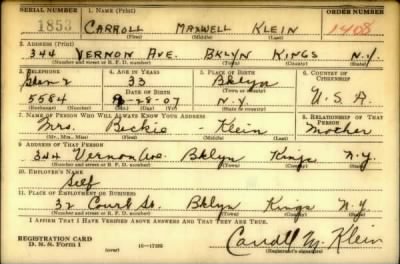 SERIAL NUMBER 1. NAME (Print) ORDER NUMBER
1853 CARROLL MAXWELL KLEIN 1408
(First) (Middle) (Last)
2. ADDRESS (Print)
344 VERNON AVE. BKLYN KINGS N.Y.
(Number and street or R. F. D. number) (Town) (County) (State)
3. TELEPHONE 4. AGE IN YEARS 5. PLACE OF BIRTH 6. COUNTRY OF CITIZENSHIP
33 Bklyn
5584 DATE OF BIRTH (Town or county)
-28-07 N.Y. U.S.A.
(Exchange) (No.) (Mo.) (Day) (Yr.) (State or country)
7. NAME OF PERSON WHO WILL ALWAYS KNOW YOUR ADDRESS 8. RELATIONSHIP OF THAT PERSON
Mrs. Beckie Klein Mother
(Mr., Mrs., Miss) (First) (Middle) (Last)
9. ADDRESS OF THAT PERSON
344 Vernon Ave. Bklyn Kings N.Y.
(Number and street or R. F. D. number) (Town) (County) (State)
10. EMPLOYER'S NAME
Self
11. PLACE OF EMPLOYMENT OR BUSINESS
32 Court St. Bklyn Kings N.Y.
(Number and street or R. F. D. number) (Town) (County) (State)
I AFFIRM THAT I HAVE VERIFIED ABOVE ANSWERS AND THAT THEY ARE TRUE.
REGISTRATION CARD
D. S. S. Form 1 (over) 16-17105 Carroll M. Klein
(Registrant's signature)